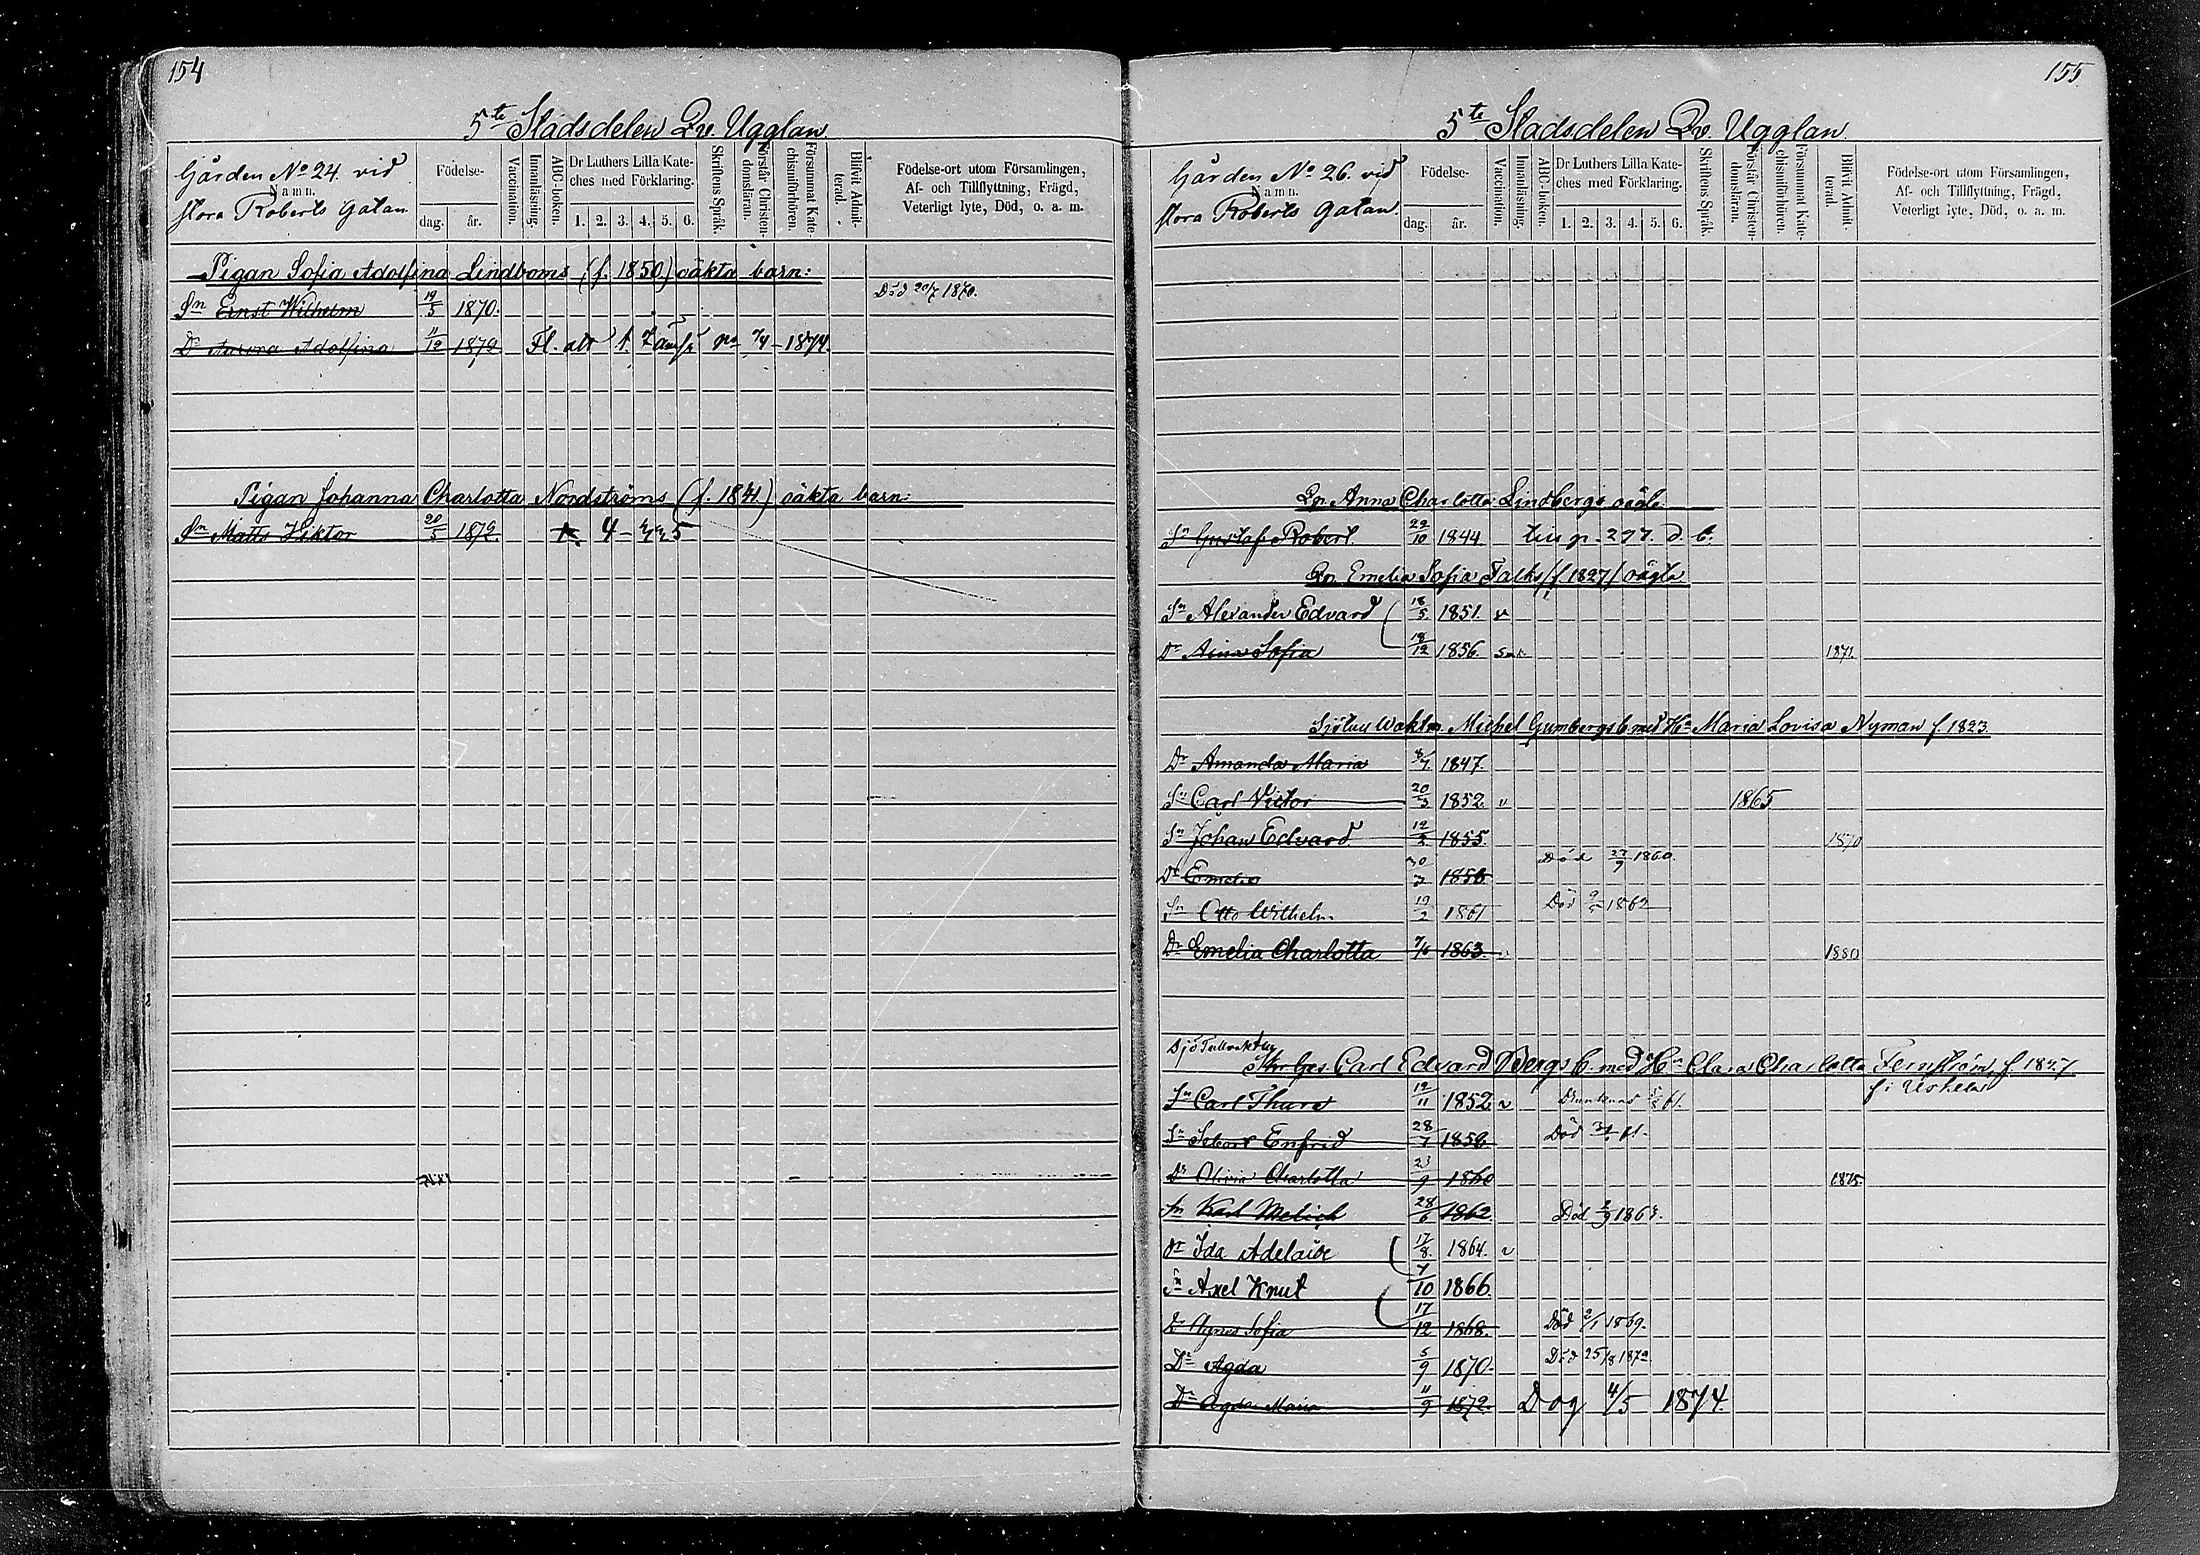 154
5te Stadsdelen Qv. Ugglan
Gården No 24. vid
Namn.
stora Roberts gatan
Födelse-
dag.
år.
Vaccination.
Innanläsning.
ABC-boken.
Dr Luthers Lilla Kate-
ches med Förklaring.
1. 2. 3. 4. 5. 6.
Skriftens Språk.
Förstår Christen-
domsläran.
Försummat Kate-
chismiförhören.
Blifvit Admit-
terad.
Födelse-ort utom Församlingen,
Af- och Tillflyttning, Frägd,
Veterligt lyte, Död, o. a. m.
Pigan Sofia Adolfina Lindboms (f. 1850) oäkta barn:
Sn Ernst Wilhelm 19/5 1870. Död 20/7 1870.
Dr Aurora Adolfina 11/12 1872 Fl. att på 7/4 1874.
Pigan Johanna Charlotta Nordströms (f. 1841) oäkta barn:
Sn Matts Viktor 20/5 1872.
155
5te Stadsdelen Qv. Ugglan.
Gården No 26. vid
Namn.
stora Roberts gatan.
Födelse-
dag.
år.
Vaccination.
Innanläsning.
ABC-boken.
Dr Luthers Lilla Kate-
ches med Förklaring.
1. 2. 3. 4. 5. 6.
Skriftens Språk.
Förstår Christen-
domsläran.
Försummat Kate-
chismiförhören.
Blifvit Admit-
terad.
Födelse-ort utom Församlingen,
Af- och Tillflyttning, Frägd,
Veterligt lyte, Död, o. a. m.
Qn. Anna Charlotta Lindbergs oägta
Sn Gustaf Robert. 22/10 1844 p. 297. d. b.
Qn. Emelia Sofia Falks (f 1827) oägta
Sn Alexander Edvard 18/5 1851. v
Dr Aina Sofia 18/12 1856. 1871.
Michel Gumbergs b. med Ha Maria Lovisa Nyman f. 1823.
Dr Amanda Maria 8/7 1847.
Sn Carl Victor 20/3 1852 v 1865
Sn Johan Edvard 12/2 1855. 1870
Dr Emelie 30/7 1858 Död 27/9 1860.
Sn Otto Wilhelm 19/2 1861 Död 1862
Dr Emelia Charlotta 7/6 1863. 1880
Carl Edvard Bergs b. med Ha Clara Charlotta Fernström, f 1827
Sn Carl Thure 12/11 1852 v
Sn Enfrid 28/7 1856. Död
Dr Olivia Charlotta 23/9 1860 1875
Sn Karl 28/6 1862. Död
Dr Ida Adelaide 17/8. 1864. v
Sn Axel Knut 7/10 1866.
Dr Agnes Sofia 17/12 1868. Död 2/1 1869.
Dr Agda 5/9 1870. Död 25/8 1872
Dr Agda Maria 11/9 1872. Dog 4/5 1874.